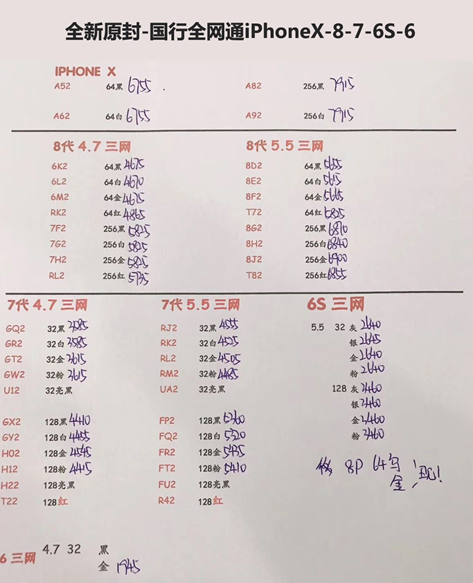 全新原封-国行全网通iPhoneX-8-7-6S-6
IPHONE X
A52 64黑 6755 A82 256黑 7915
A62 64白 6755 A92 256白 7915
8代 4.7 三网 8代 5.5 三网
6K2 64黑 4675 8D2 64黑 5655
6L2 64白 4670 8E2 64白 5615
6M2 64金 4675 8F2 64金 5665
RK2 64红 4865 T72 64红 5825
7F2 256黑 5825 8G2 256黑 6870
7G2 256白 5825 8H2 256白 6840
7H2 256金 5825 8J2 256金 6900
RL2 256红 5735 T82 256红 6855
7代 4.7 三网 7代 5.5 三网 6S 三网
GQ2 32黑 3585 RJ2 32黑 4555 5.5 32 灰 2640
GR2 32白 3585 RK2 32白 4525 银 2645
GT2 32金 3615 RL2 32金 4505 金 2640
GW2 32粉 3615 RM2 32粉 4485 粉 2640
U12 32亮黑 UA2 32亮黑 128 灰 3460
银 3460
GX2 128黑 4410 FP2 128黑 5360 金 3460
GY2 128白 4455 FQ2 128白 5320 粉 3460
H02 128金 4545 FR2 128金 5435
H12 128粉 4415 FT2 128粉 5410 8P 64
H22 128亮黑 FU2 128亮黑 金
T22 128红 R42 128红
6 三网 4.7 32 黑
金 1945